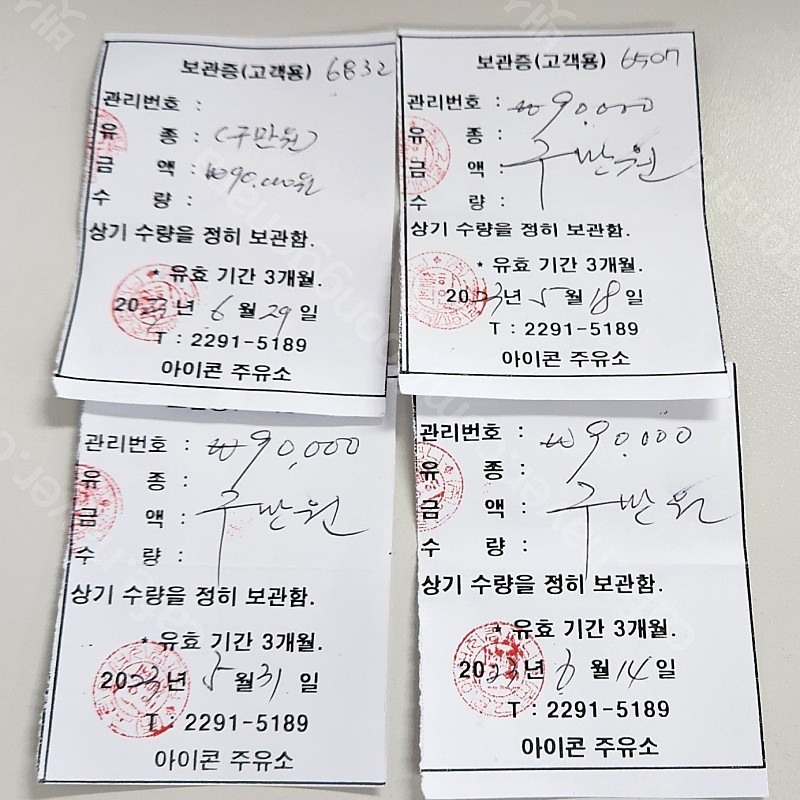 보관증(고객용) 6832
관리번호 :
유 종 : (구만원)
금 액 : ₩90,000원
수 량 :
상기 수량을 정히 보관함.
* 유효 기간 3개월.
2023년 6월 29일
T : 2291-5189
아이콘 주유소
보관증(고객용) 6507
관리번호 : ₩90,000
유 종 :
금 액 : 구만원
수 량 :
상기 수량을 정히 보관함.
* 유효 기간 3개월.
2023년 5월 18일
T : 2291-5189
아이콘 주유소
관리번호 : ₩90,000
유 종 :
금 액 : 구만원
수 량 :
상기 수량을 정히 보관함.
* 유효 기간 3개월.
2023년 5월 31일
T : 2291-5189
아이콘 주유소
관리번호 : ₩90,000
유 종 :
금 액 : 구만원
수 량 :
상기 수량을 정히 보관함.
* 유효 기간 3개월.
2023년 6월 14일
T : 2291-5189
아이콘 주유소